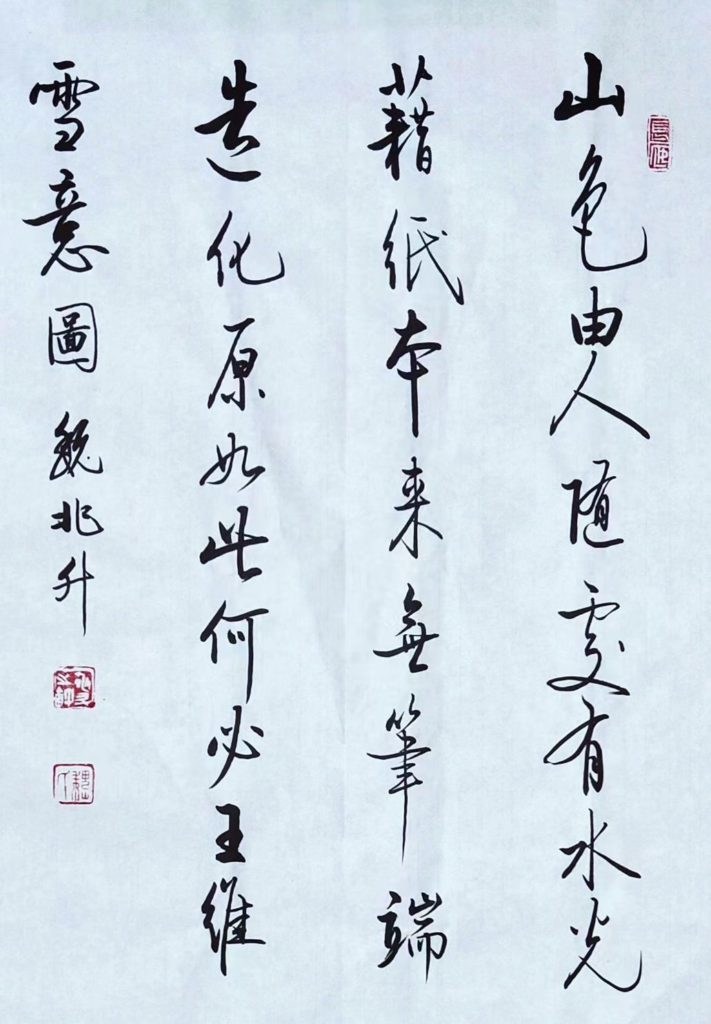 山色由人随處有水光
藉紙本来無筆端
造化原如此何必王維
雪意圖 魏兆升